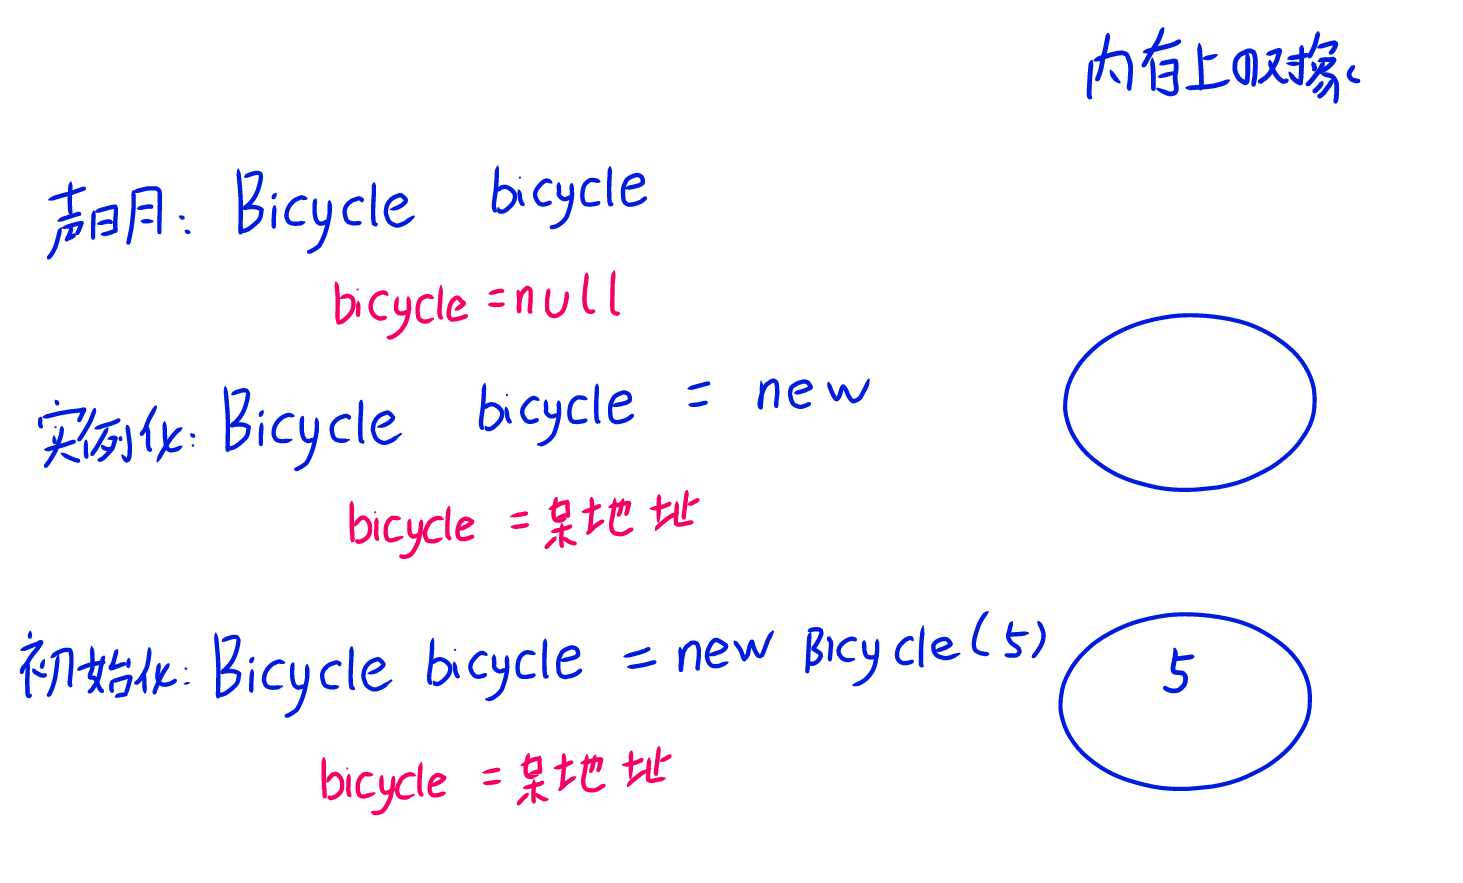 内存上的对像。
声明: Bicycle bicycle
bicycle = null
实例化: Bicycle bicycle = new
bicycle = 某地址
初始化: Bicycle bicycle = new Bicycle(5)
5
bicycle = 某地址